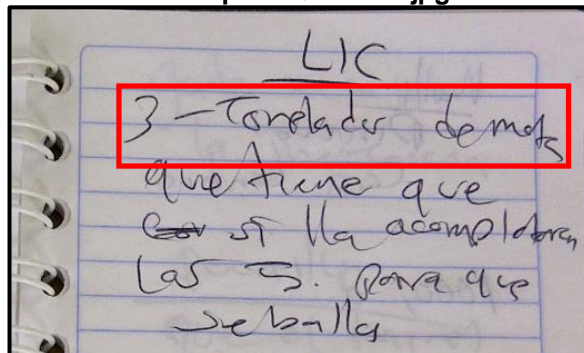 LIC
3-Toneladas de mota
que tiene que
si lla acompletaron
Las 5. para que
se balla